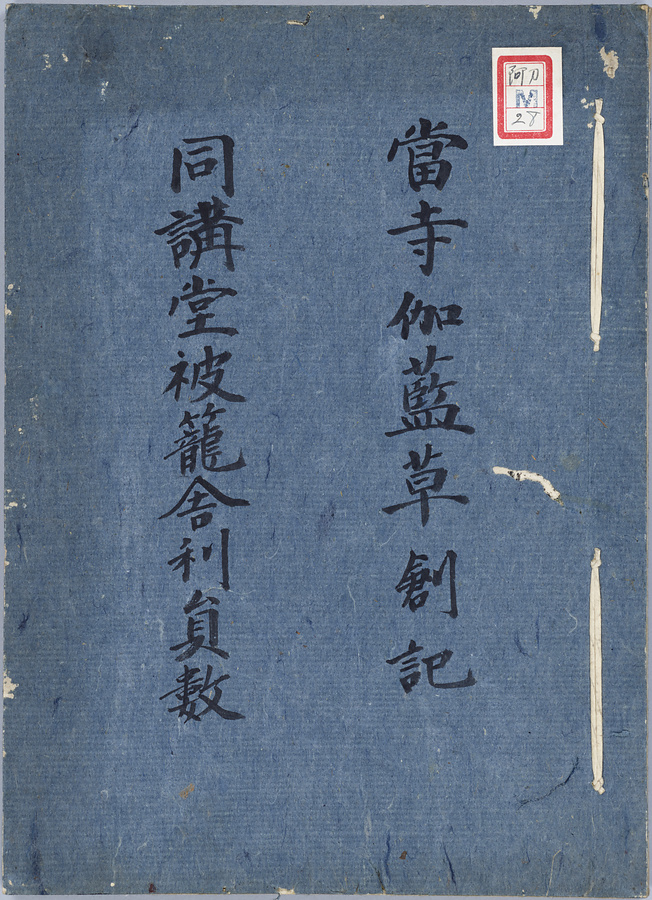 阿刀
M
28
當寺伽藍草創記
同講堂被籠舎利員數